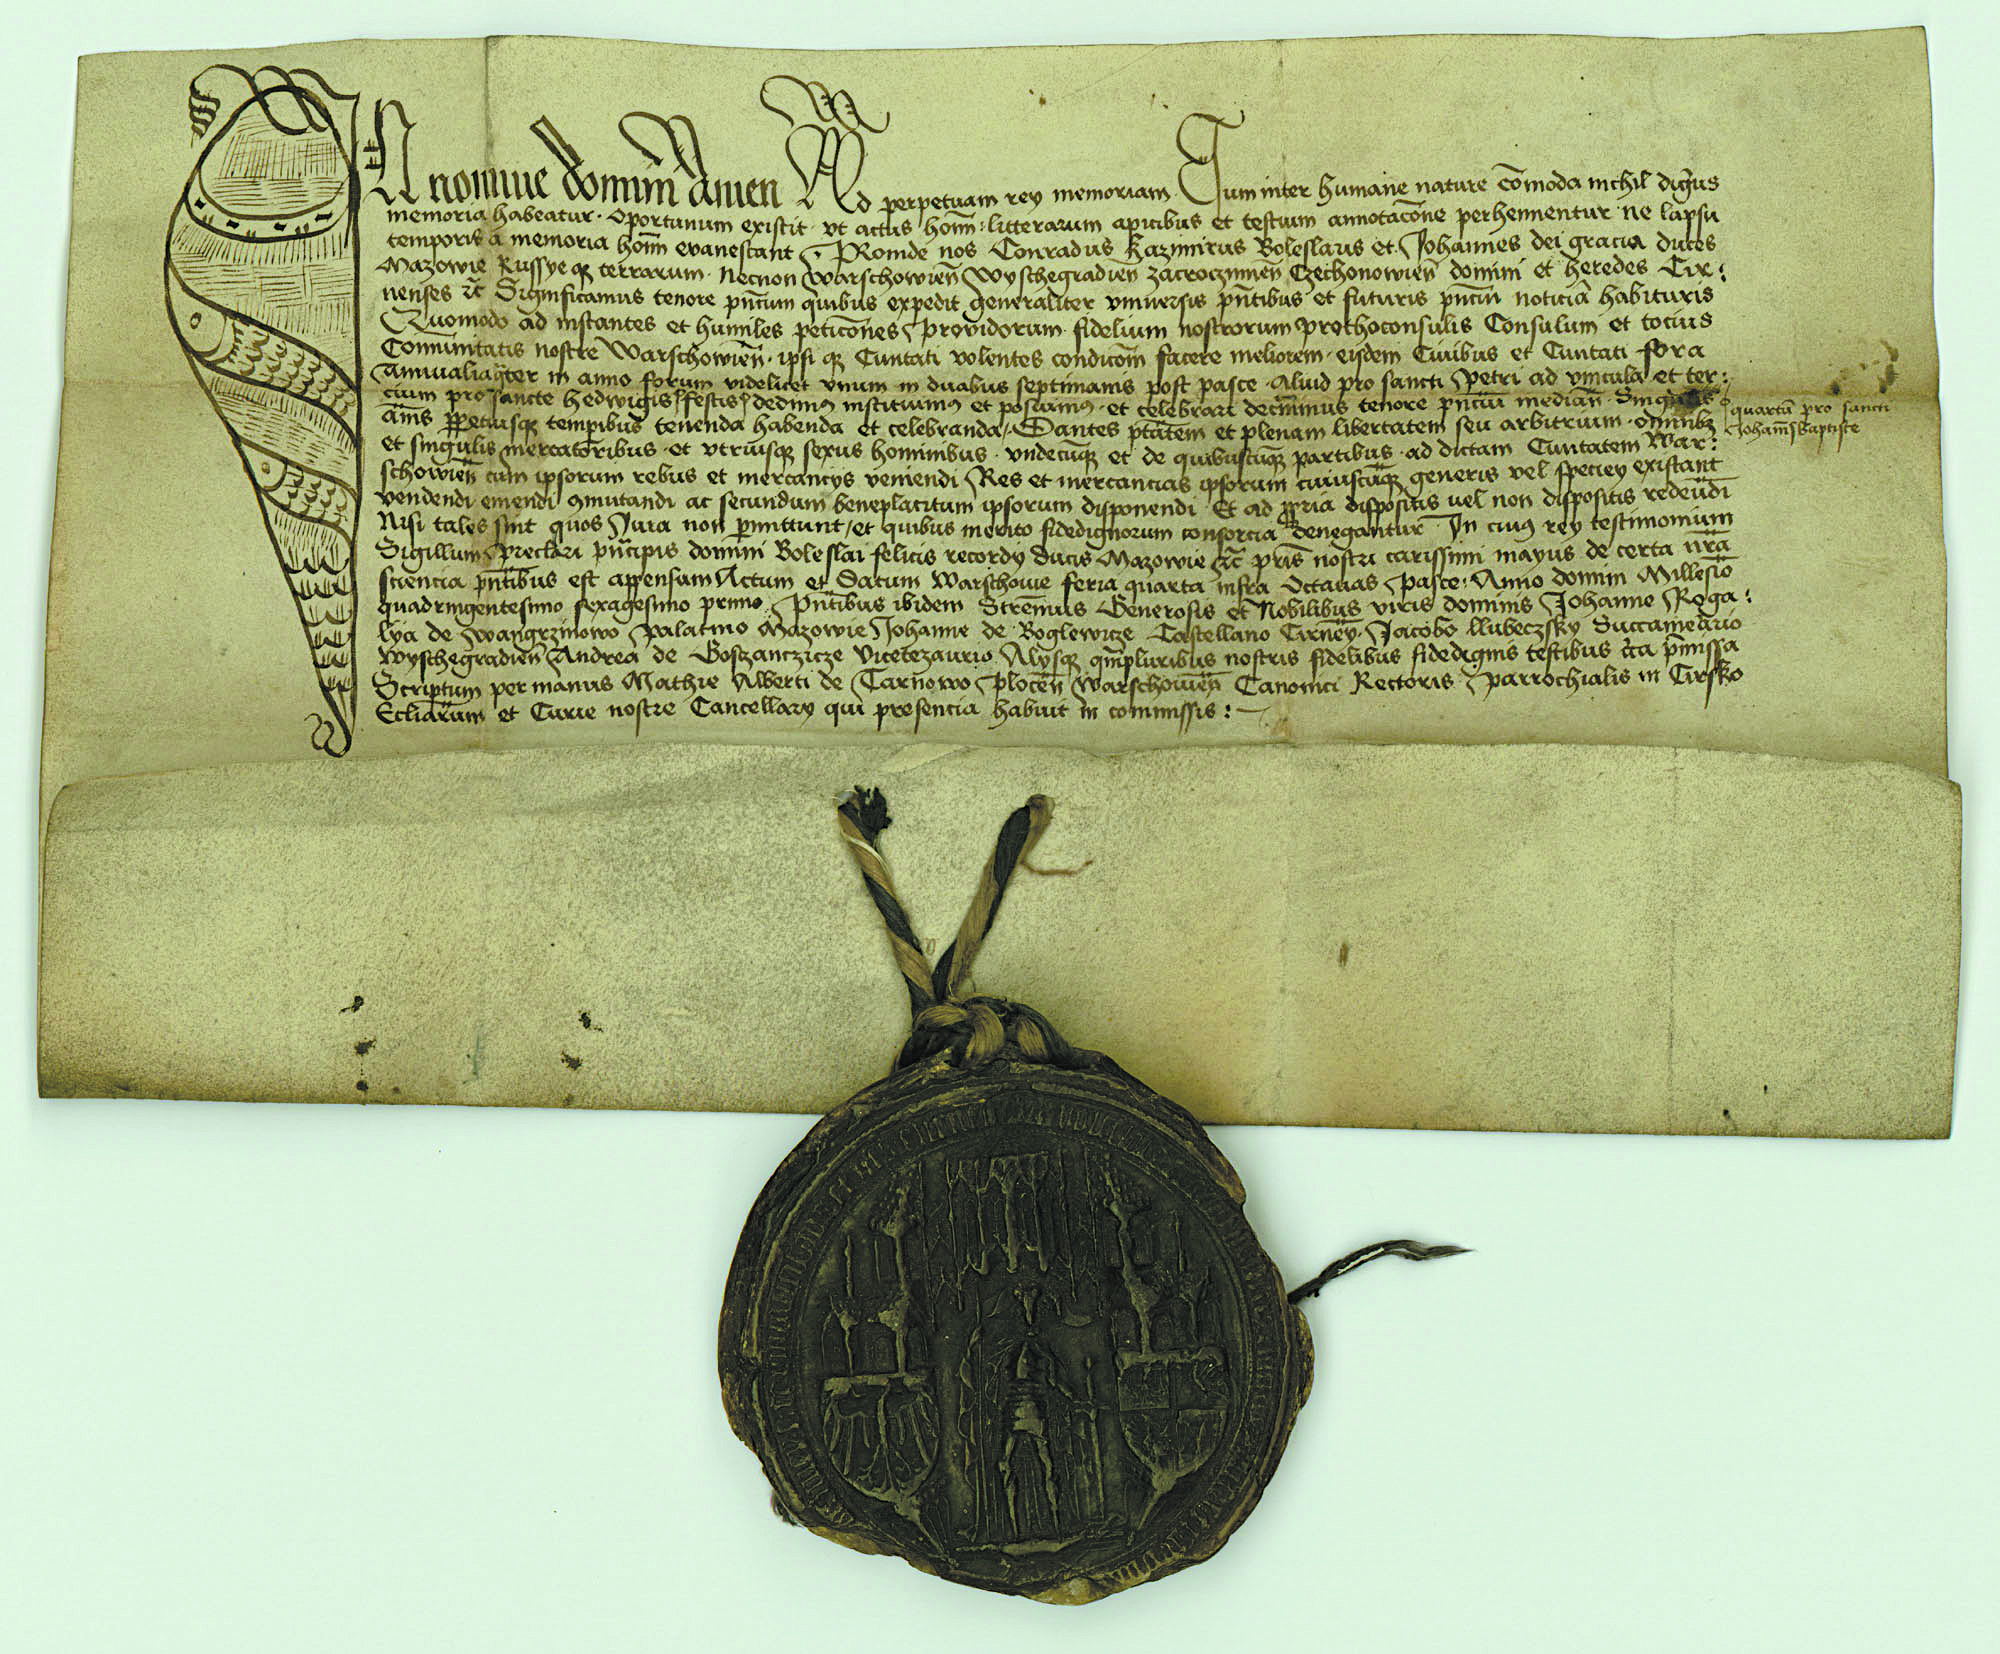 In nomine domini Amen Ad perpetuam rey memoriam. Cum inter humane nature cōmoda nichil dig̃us
memoria habeatur. oportunum existit. vt actus hoīm: litterarum apicibus et testium annotacōne perhennentur ne lapsu
temporis a memoria hoīm evanescant. Proinde nos Conradus Kazimirus Boleslaus et Johannes dei gracia duces
Mazowie Russyeqꝫ terrarum. necnon Warschowieñ Wyschegradieñ zacroczimineñ Czechonowieñ domini et heredes Cir:
nenses ꝛc̃ Significamus tenore pñcium quibus expedit generaliter vniuersis pñtibus et futuris pñcm̃ noticiã habituris
Quomodo ad instantes et humiles peticōnes providorum fidelium nostrorum prothoconsulis Consulum et tocius
Cōmunitatis nostre Warschowieñ. ipsiqꝫ Ciuitati volentes condicōm̃ facere meliorem. eisdem Ciuibus et Ciuitati fora
annualia ter in anno forum videlicet vnum in duabus septimanis post pasce. aliud pro sancti Petri ad vincula et ter:
cium pro sancte Hedwigis festis dedimus instituimus et posuimus. et celebrari decreuimus tenore pñcium median̄. Singulis
quartũ pro sancti
Johañis Baptiste
ãnis ꝑpetuisqꝫ temꝑibus tenenda habenda et celebranda. Dantes ptãtem et plenam libertatem seu arbitrium. omnibꝫ
et singulis mercatoribus. et vtriusqꝫ sexus hominibus. vndecũqꝫ et de quibuscũqꝫ partibus. ad dictam Ciuitatem War:
schowieñ cum ipsorum rebus et mercancys veniendi Res et mercancias ipsorum cuiuscũqꝫ generis vel speciey existant
vendendi emendi ꝯmutandi ac secundum beneplacitum ipsorum disponendi. Et ad ꝓpria dispositis vel non dispositis redeũdi
Nisi tales sint quos Jura non ꝑmittunt, et quibus merito fidedignorum consorcia denegantur. In cuius rey testimonium
Sigillum preclari pñcipis domini Boleslai felicis recordy ducis Mazowie ꝛc̃ pr̃is nostri carissimi mayus de certa nr̃a
sciencia pñtibus est appensum Actum et Datum Warschowie feria quarta infra Octauas Pasce. Anno domini Millesīo
quadringentesimo sexagesimo primo. Pñtibus ibidem Strennuis Generosis et Nobilibus viris dominis Johanne Roga:
lya de Wangrzinowo Palatino Mazowie Johanne de Boglewicze Castellano Cirneñ. Jacobo Llubeczsky Succamerario
Wyschegradieñ Andrea de Goszanczicze Vicetezaurio Alysqꝫ qm̃pluribus nostris fidelibus fidedignis testibus cĩrca p̃missa
Scriptum per manus Mathie Alberti de Tarnowo Ploceñ Warschowieñ Canonici Rectoris parrochialis in Cirsko
Ecliarum et Curie nostre Cancellary qui presencia habuit in commissis: